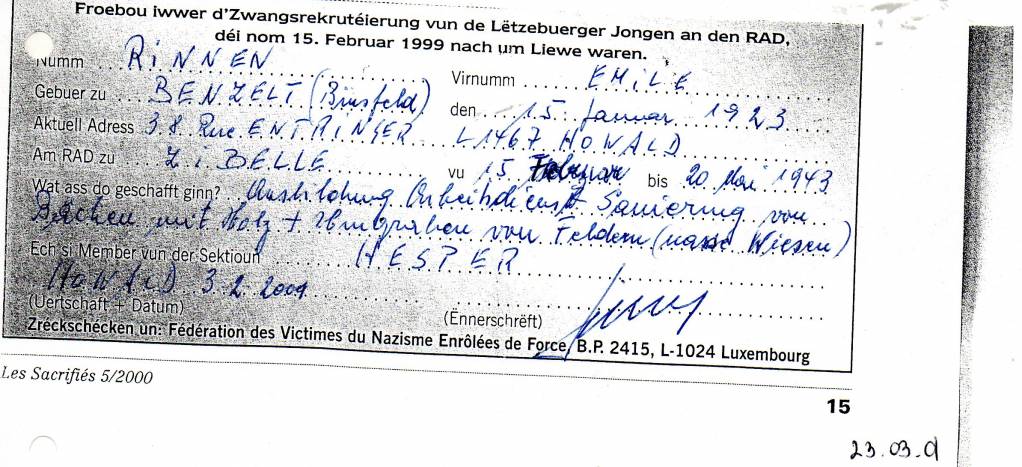 Froebou iwwer d'Zwangsrekrutéierung vun de Lëtzebuerger Jongen an den RAD,
déi nom 15. Februar 1999 nach um Liewe waren.
Numm RINNEN Virnumm EMILE
Gebuer zu BENZELT (Binsfeld) den 15. Januar 1923
Aktuell Adress 38 Rue ENTRINGER L1467 HOWALD
Am RAD zu ZIBELLE vu 15 Februar bis 20 Mai 1943
Wat ass do geschafft ginn? Ausbildung Arbeitsdienst Sanierung von
Bächen mit Holz + Umgraben von Feldern (nasse Wiesen)
Ech si Member vun der Sektioun HESPER
HOWALD 3 2 2001
(Uertschaft + Datum) (Ënnerschrëft)
Zreckschécken un: Fédération des Victimes du Nazisme Enrôlées de Force, B.P. 2415, L-1024 Luxembourg
Les Sacrifiés 5/2000
15
23.03.0